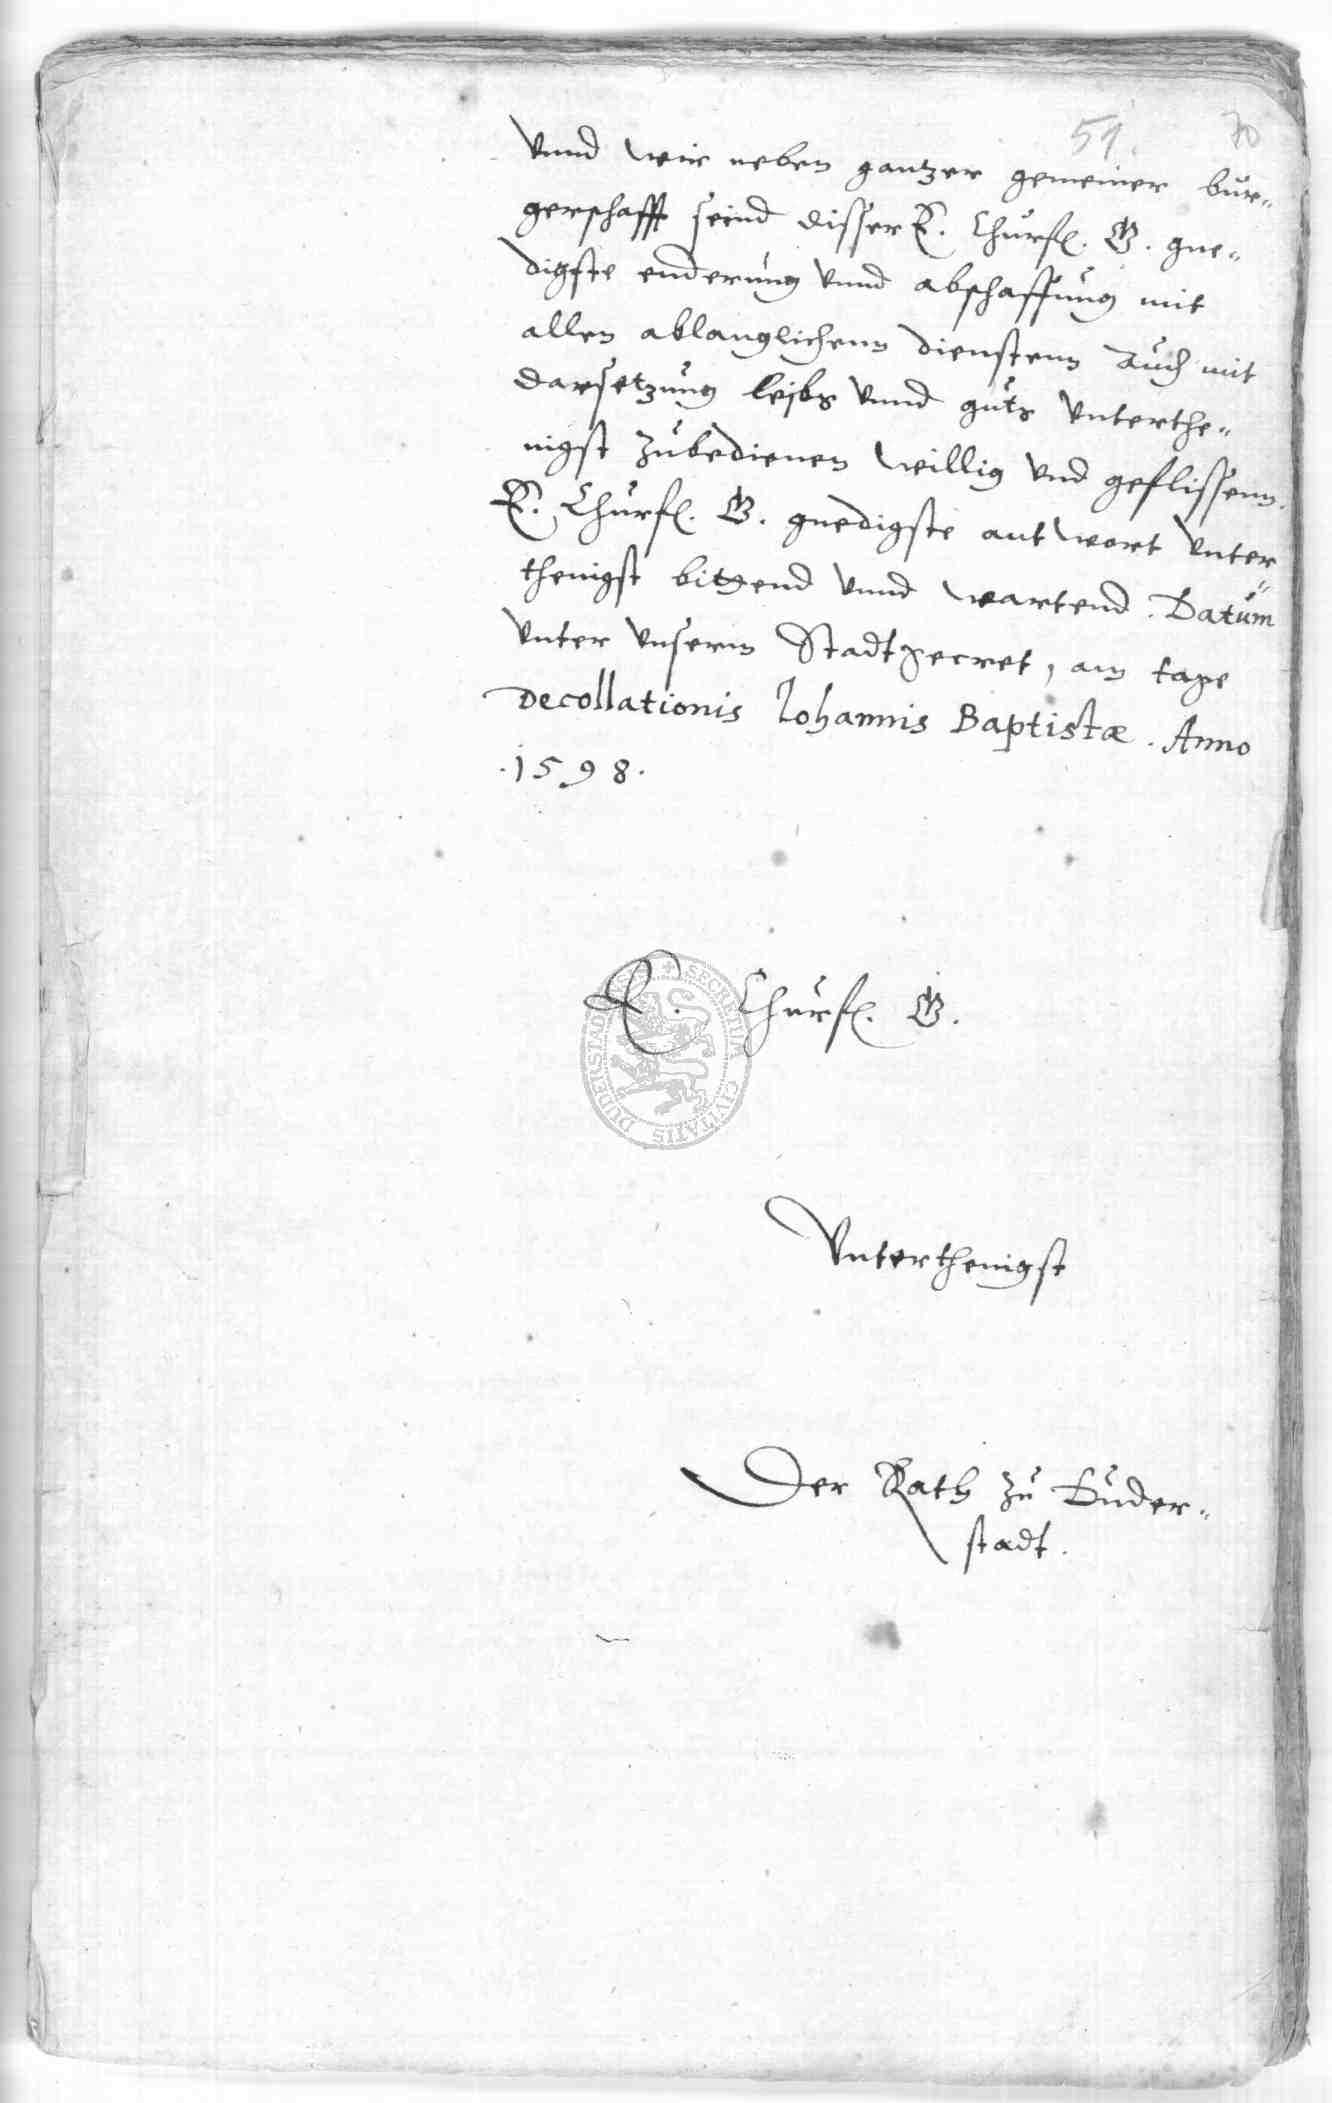 59. 70
Vnnd wir neben gantzer gemeiner bur-
gerschafft seind disser E. Churfl. G. gne-
digste enderung vnnd abschaffung mit
allen ablanglichenn dienstenn auch mit
darsetzung leibs vnnd guts vnterthe-
nigst zubedienen willig vnd geflissenn.
E. Churfl. G. gnedigste antwort vnter-
thenigst bittend vnnd wartend. Datum
vnter vnserm Stadtsecret, am tage
Decollationis Iohannis Baptistæ. Anno
.1598.
E. Churfl. G.
SECRETUM CIVITATIS DUDERSTADENSIS
Vnterthenigst
Der Rath zu Duder-
stadt.